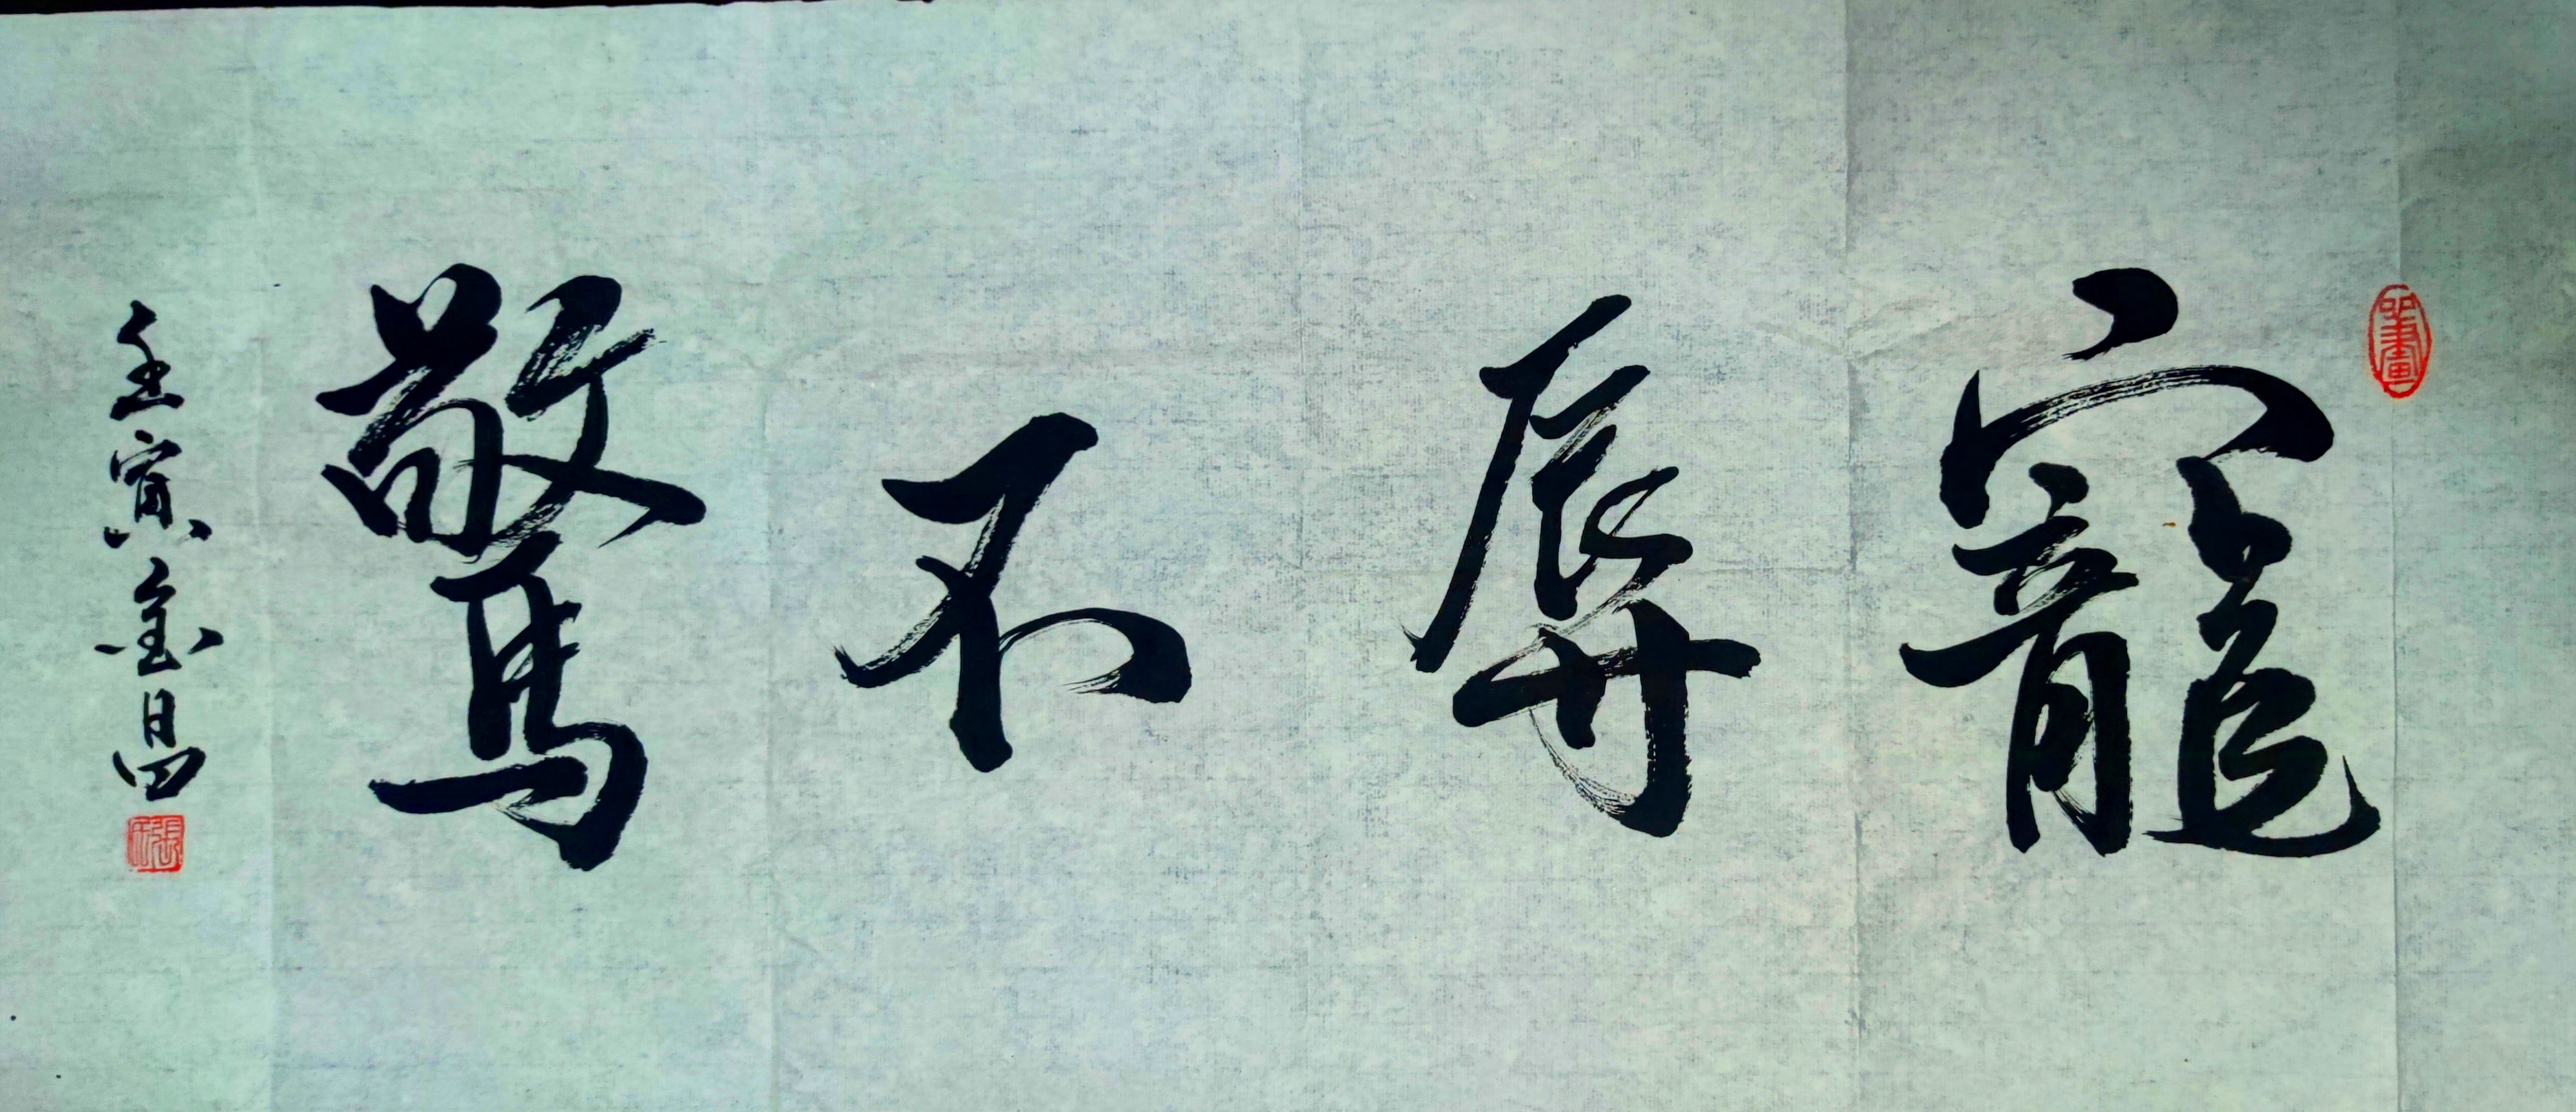 寵辱不驚
壬寅金昌